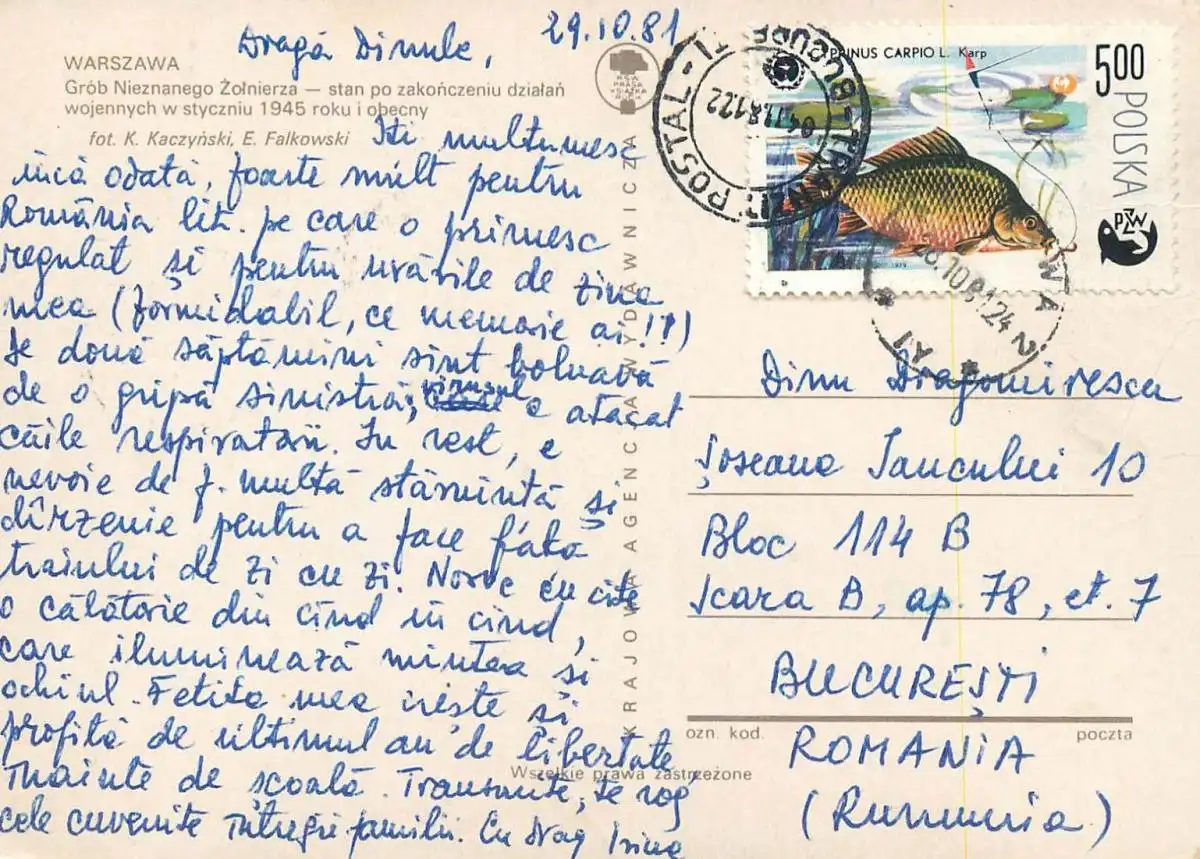 Dragă Dinule,
29.10.81
WARSZAWA
Grób Nieznanego Żołnierza — stan po zakończeniu działań
wojennych w styczniu 1945 roku i obecny
fot. K. Kaczyński, E. Falkowski
Iti multumesc
încă odată, foarte mult pentru
România lit. pe care o primesc
regulat și pentru urările de ziua
mea (formidabil, ce memorie ai!?)
De două săptămîni sînt bolnavă
de o gripă sinistră; virusul a atacat
căile respiratorii. In rest, e
nevoie de f. multă stăruintă și
dîrzenie pentru a face fată
traiului de zi cu zi. Noroc cu cîte
o călătorie din cînd în cînd,
care iluminează mintea și
ochiul. Fetita mea crește și
profită de ultimul an de libertate
înainte de școală. Transmite, te rog
cele cuvenite întregii familii. Cu drag Irina
KRAJOWA AGENCJA WYDAWNICZA
Wszelkie prawa zastrzeżone
CYPRINUS CARPIO L. Karp
500
POLSKA
PZW
1979
POSTAL
04.11.81 22
28.10.81 24
WA
Dinu Dragomirescu
Șoseaua Iancului 10
Bloc 114 B
Scara B, ap. 78, et. 7
BUCUREȘTI
ozn. kod.
poczta
ROMANIA
(Rumunia)